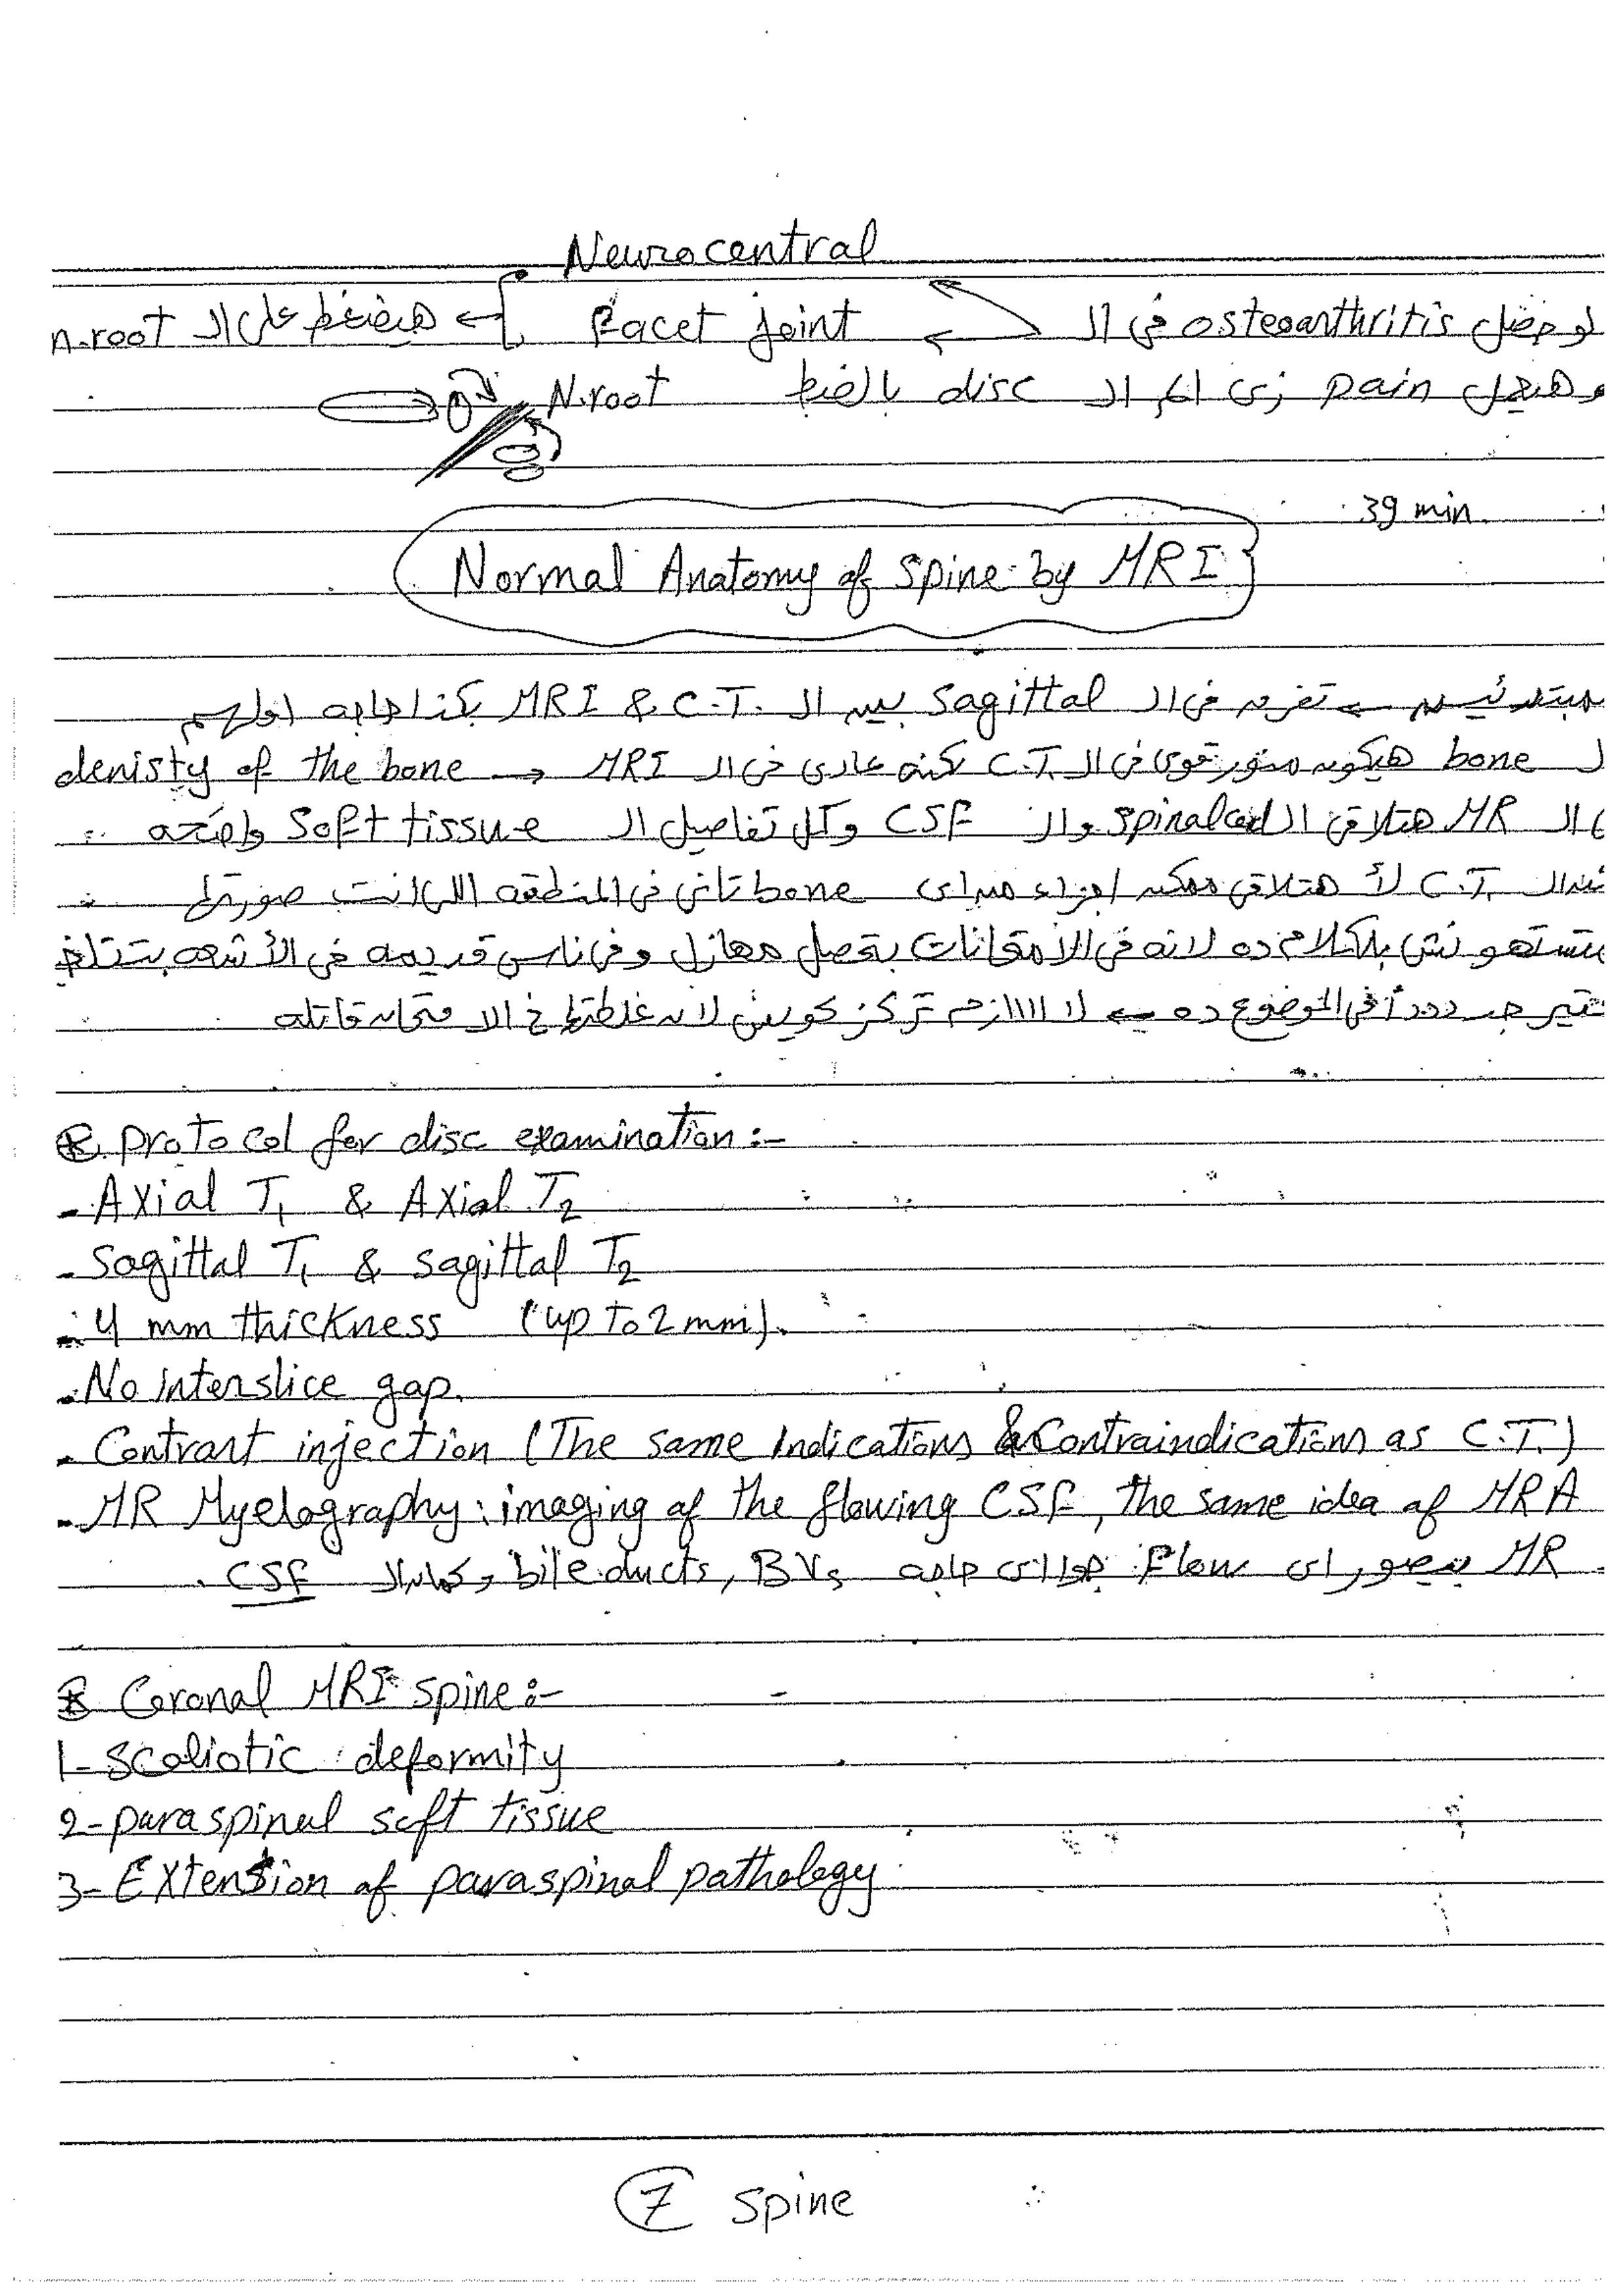 Neurocentral
لو حصل osteoarthritis في ال Facet joint ← هيضغط على ال n.root
وهيعمل pain زى الم ال disc بالضبط
N.root
39 min
Normal Anatomy of spine by MRI
تفرق في ال Sagittal بين ال MRI & C.T. بكذا حاجه اولهم
bone هيكون منور قوى في ال C.T. لكنه عادى في ال MRI → denisty of the bone
ال MR هتلاقى ال spinal cord وال CSF وكل تفاصيل ال Soft tissue واضحه
C.T. لأ هتلاقى ممكن اجزاء من اى bone تانى في المنطقه اللى انت صورتها
بالكلام ده لانه في الامتحانات بتحصل مهازل وفى ناس قديمه في الأشعه بتتلخبط
جدددداً في الموضوع ده ← لاااازم تركز كويس لان غلطتها في الامتحان قاتله
* protocol for disc examination :-
- Axial T1 & Axial T2
- Sagittal T1 & sagittal T2
- 4 mm thickness (up to 2 mm).
- No interslice gap.
- Contrast injection (The same Indications & Contraindications as C.T.)
- MR Myelography: imaging of the flowing CSF, the same idea of MRA
MR بيصور اى flow جوا اى حاجه BVs, bile ducts, وكمان ال CSF.
* Coronal MRI spine :-
1- Scoliotic deformity
2- paraspinal soft tissue
3- Extension of paraspinal pathology
7 spine